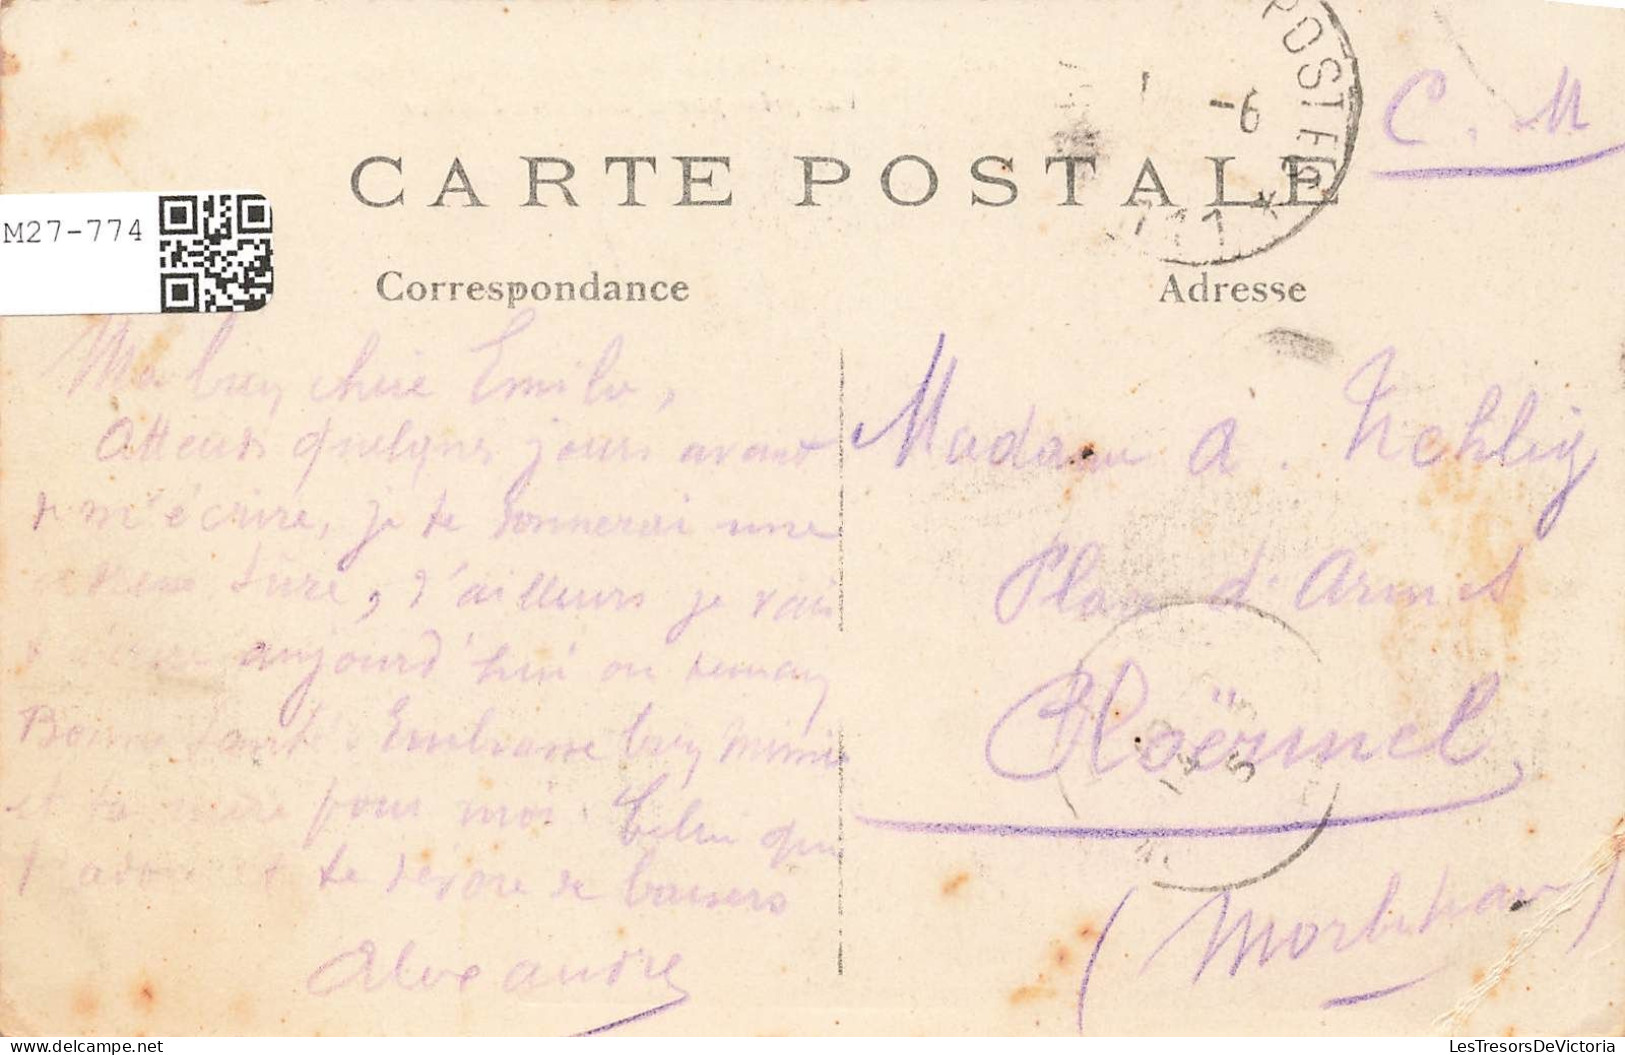 POSTES
-6
C. M
CARTE POSTALE
M27-774
Correspondance
Adresse
Ma bien chère Emilie,
Attends quelques jours avant
m'écrire, je te donnerai une
sûre, d'ailleurs je vais
aujourd'hui ou demain
Bonne santé. Embrasse bien Mimie
et ta mère pour moi. Celui qui
t'adore et te dévore de baisers
Alexandre
Madame A. Nehlig
Place d'Armes
Ploërmel,
(Morbihan)
LesTresorsDeVictoria